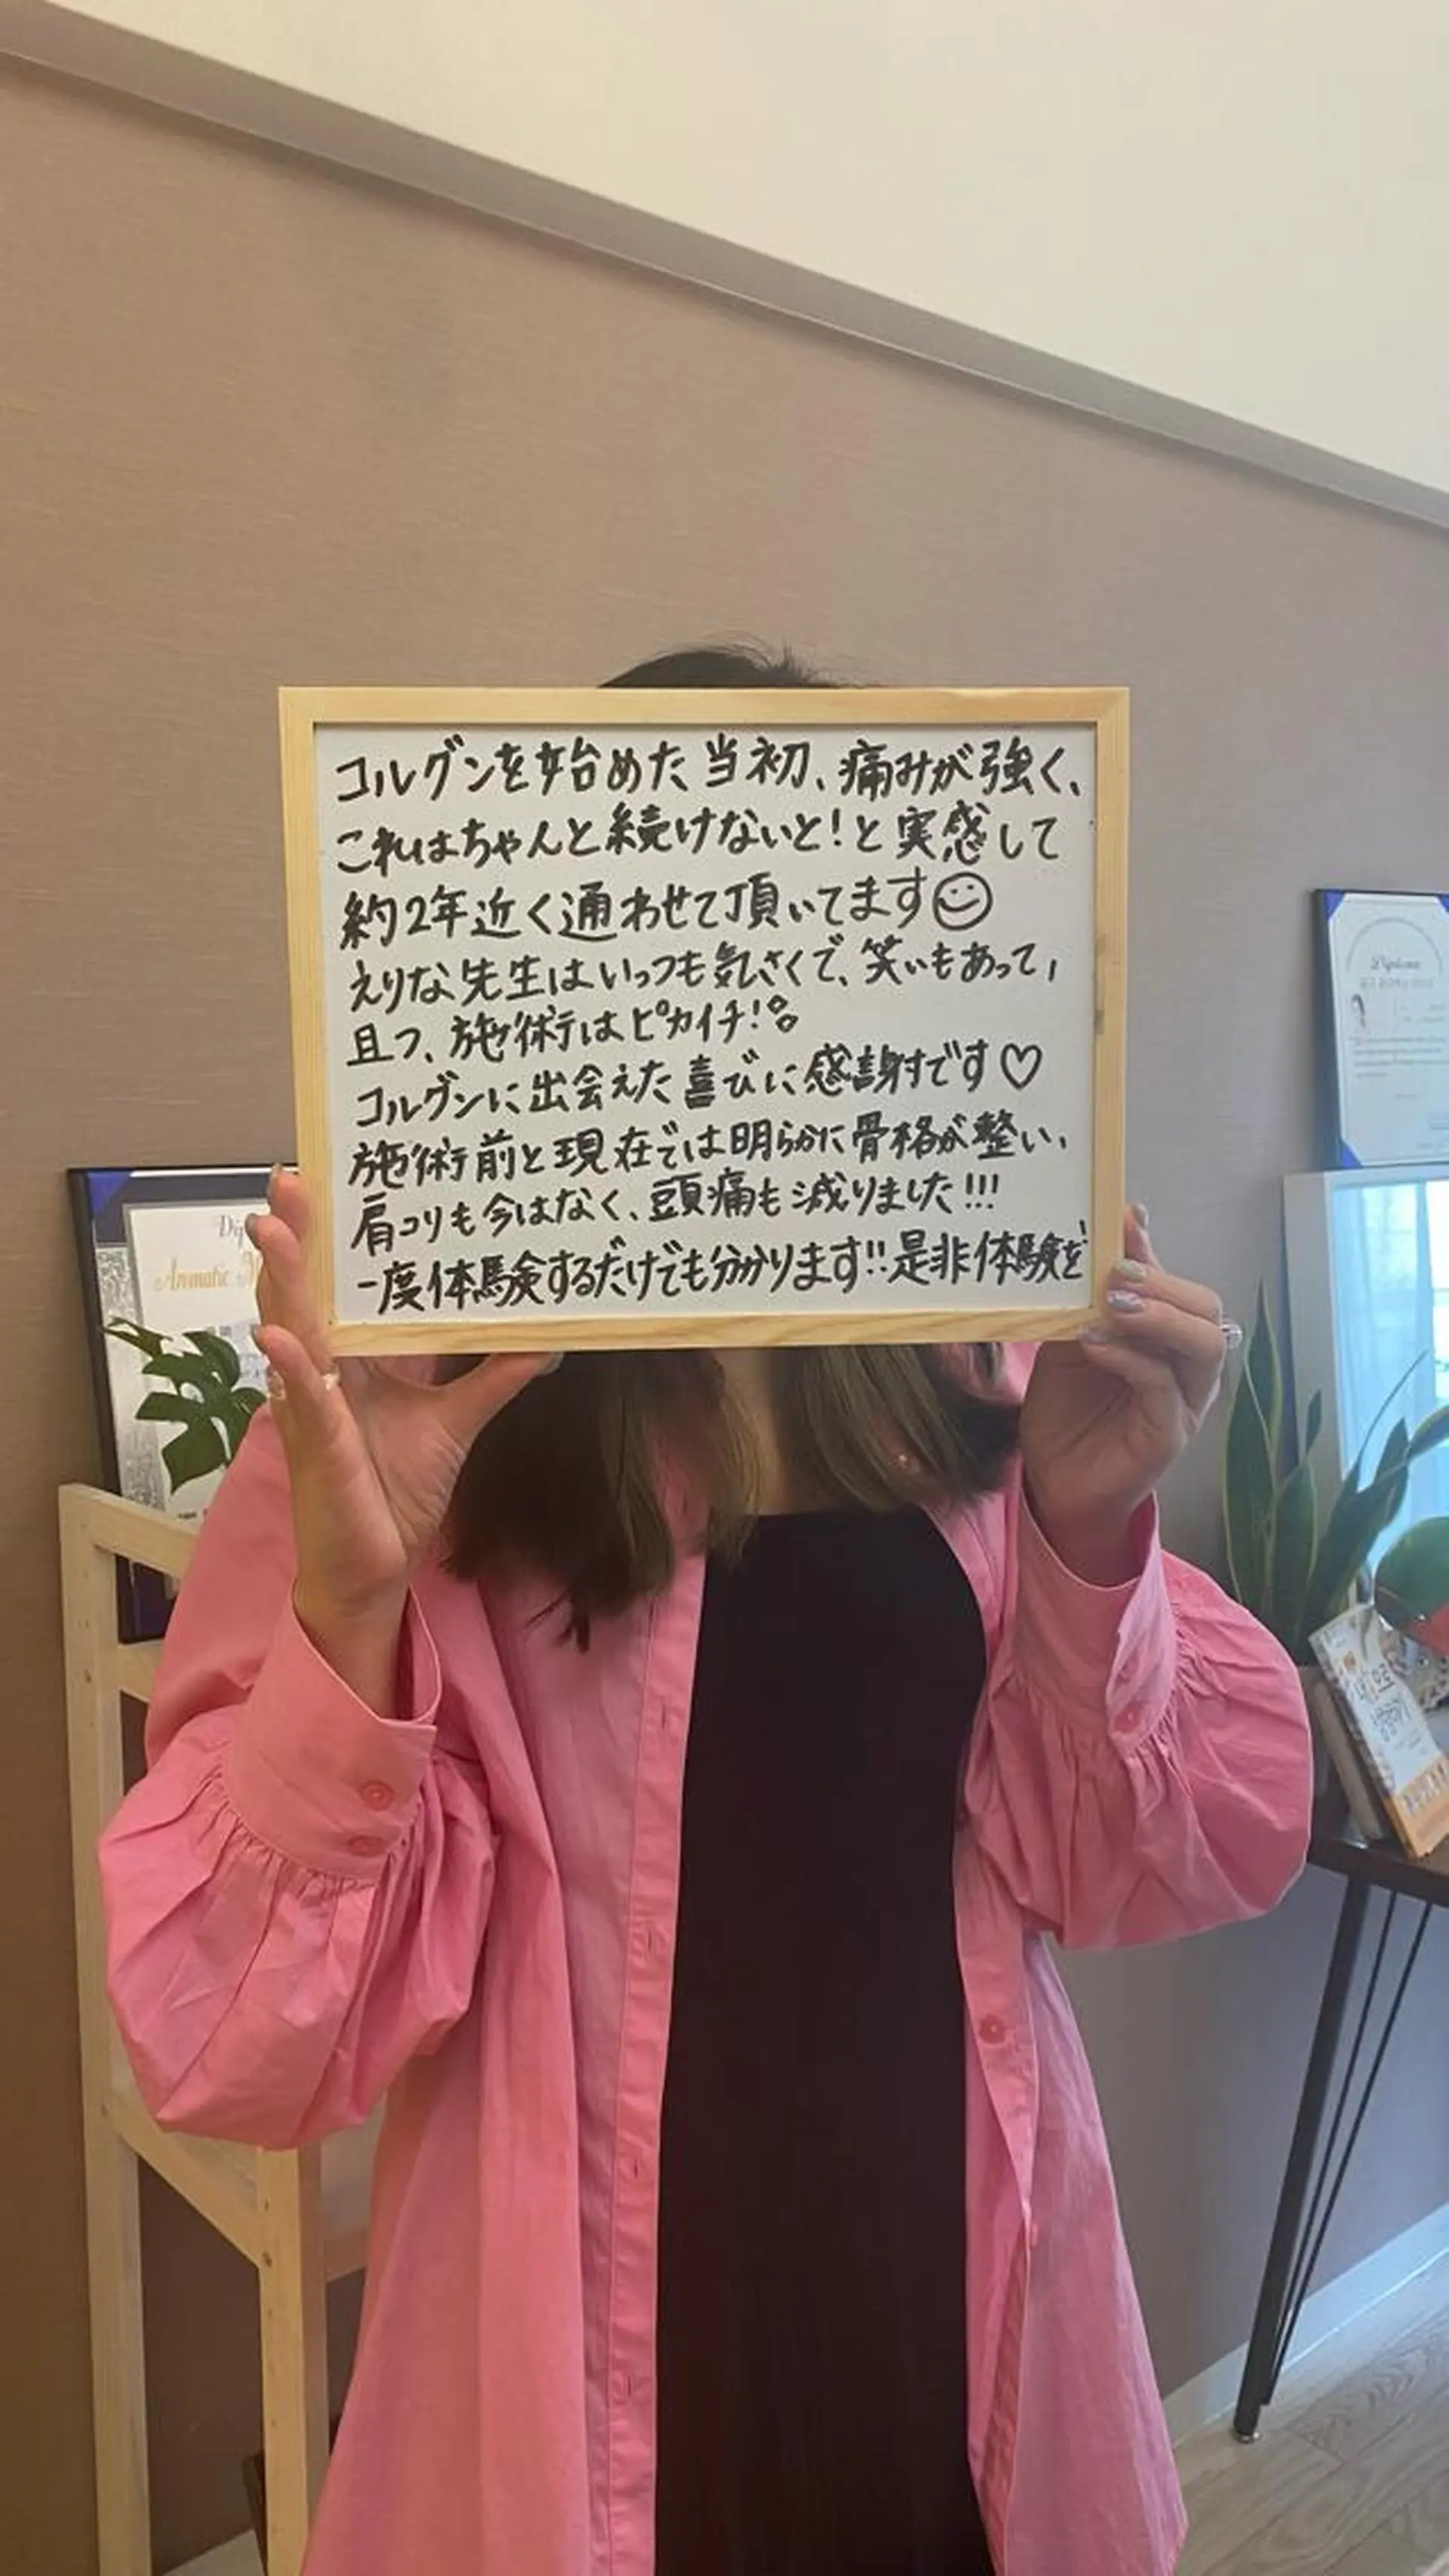 コルグンを始めた当初、痛みが強く、
これはちゃんと続けないと!と実感して
約2年近く通わせて頂いてます☺
えりな先生はいつも気さくで、笑いもあって、
且つ、施術はピカイチ!
コルグンに出会えた喜びに感謝です♡
施術前と現在では明らかに骨格が整い、
肩コリも今はなく、頭痛も減りました!!!
一度体験するだけでも分かります!!是非体験を!
Diploma
Aromatic